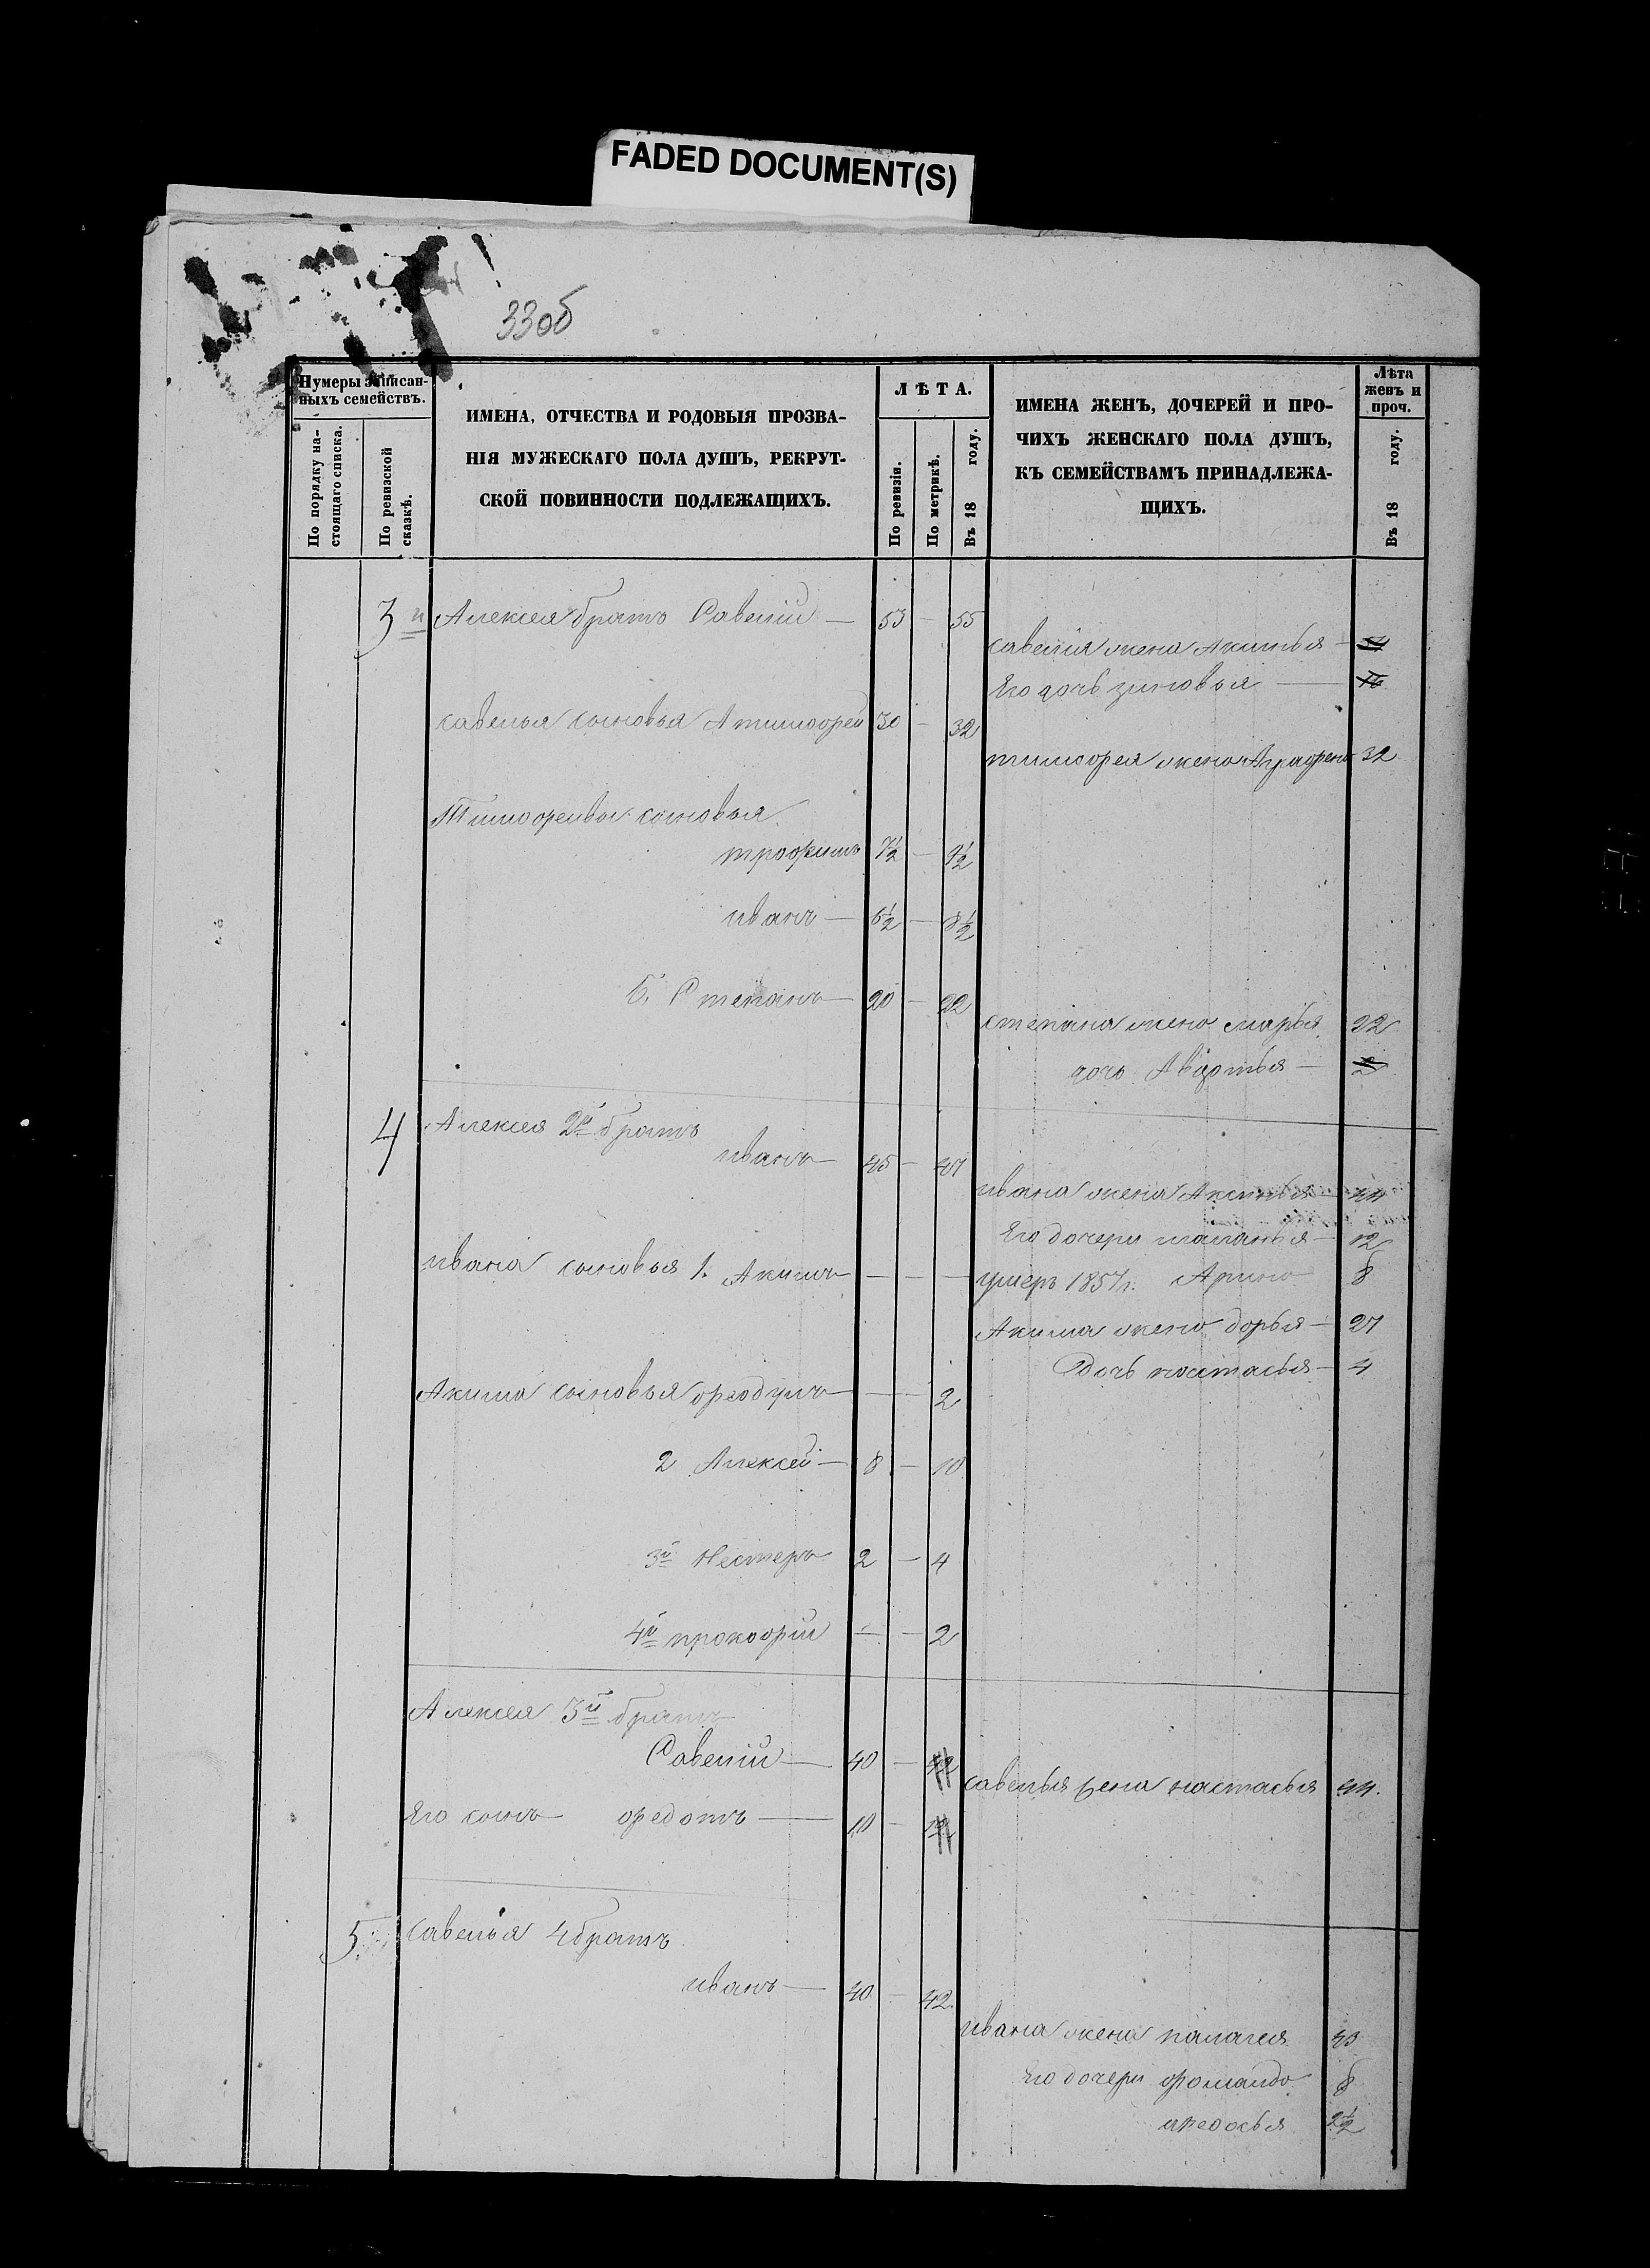 FADED DOCUMENT(S)
33об
Нумеры записан-
ныхъ семействъ.
По порядку на-
стоящаго списка.
По ревизской
сказкѣ.
ИМЕНА, ОТЧЕСТВА И РОДОВЫЯ ПРОЗВА-
НІЯ МУЖЕСКАГО ПОЛА ДУШЪ, РЕКРУТ-
СКОЙ ПОВИННОСТИ ПОДЛЕЖАЩИХЪ.
ЛѢТА.
По ревизіи.
По метрикѣ.
Въ 18 году.
ИМЕНА ЖЕНЪ, ДОЧЕРЕЙ И ПРО-
ЧИХЪ ЖЕНСКАГО ПОЛА ДУШЪ,
КЪ СЕМЕЙСТВАМЪ ПРИНАДЛЕЖА-
ЩИХЪ.
Лѣта
женъ и
проч.
Въ 18 году.
3й Алексея братъ Савелій — 53 — 55
савелія жена Акинья —
Его дочь зиновья —
савелья сыновья А тимофей 30 — 32
тимофея жена Аграфена 32
Тимофеивы сыновья
трофимъ 7½ — 9½
иванъ — 6½ — 8½
Б. Степанъ — 20 — 22
степана жена марья 22
дочь Авдотья — 2
4 Алексея 2й братъ
иванъ — 45 — 47
ивана жена Аксинья — 44
Его дочери маланья — 12
ивана сыновья 1. Акимъ — — — умеръ 1857г. Арина 8
Акима жена дарья — 27
Дочь настасья — 4
Акима сыновья феодулъ — — 2
2 Алексей — 8 — 10
3й Нестеръ 2 — 4
4й прокофий — — 2
Алексея 3й братъ
Савелій — 40 — 42
савелья жена настасья 44.
Его сынъ федотъ — 10 — 12
5. савелья 4 братъ
иванъ — 40 — 42.
ивана жена палагея 43
Его дочери фомаида 8
2½